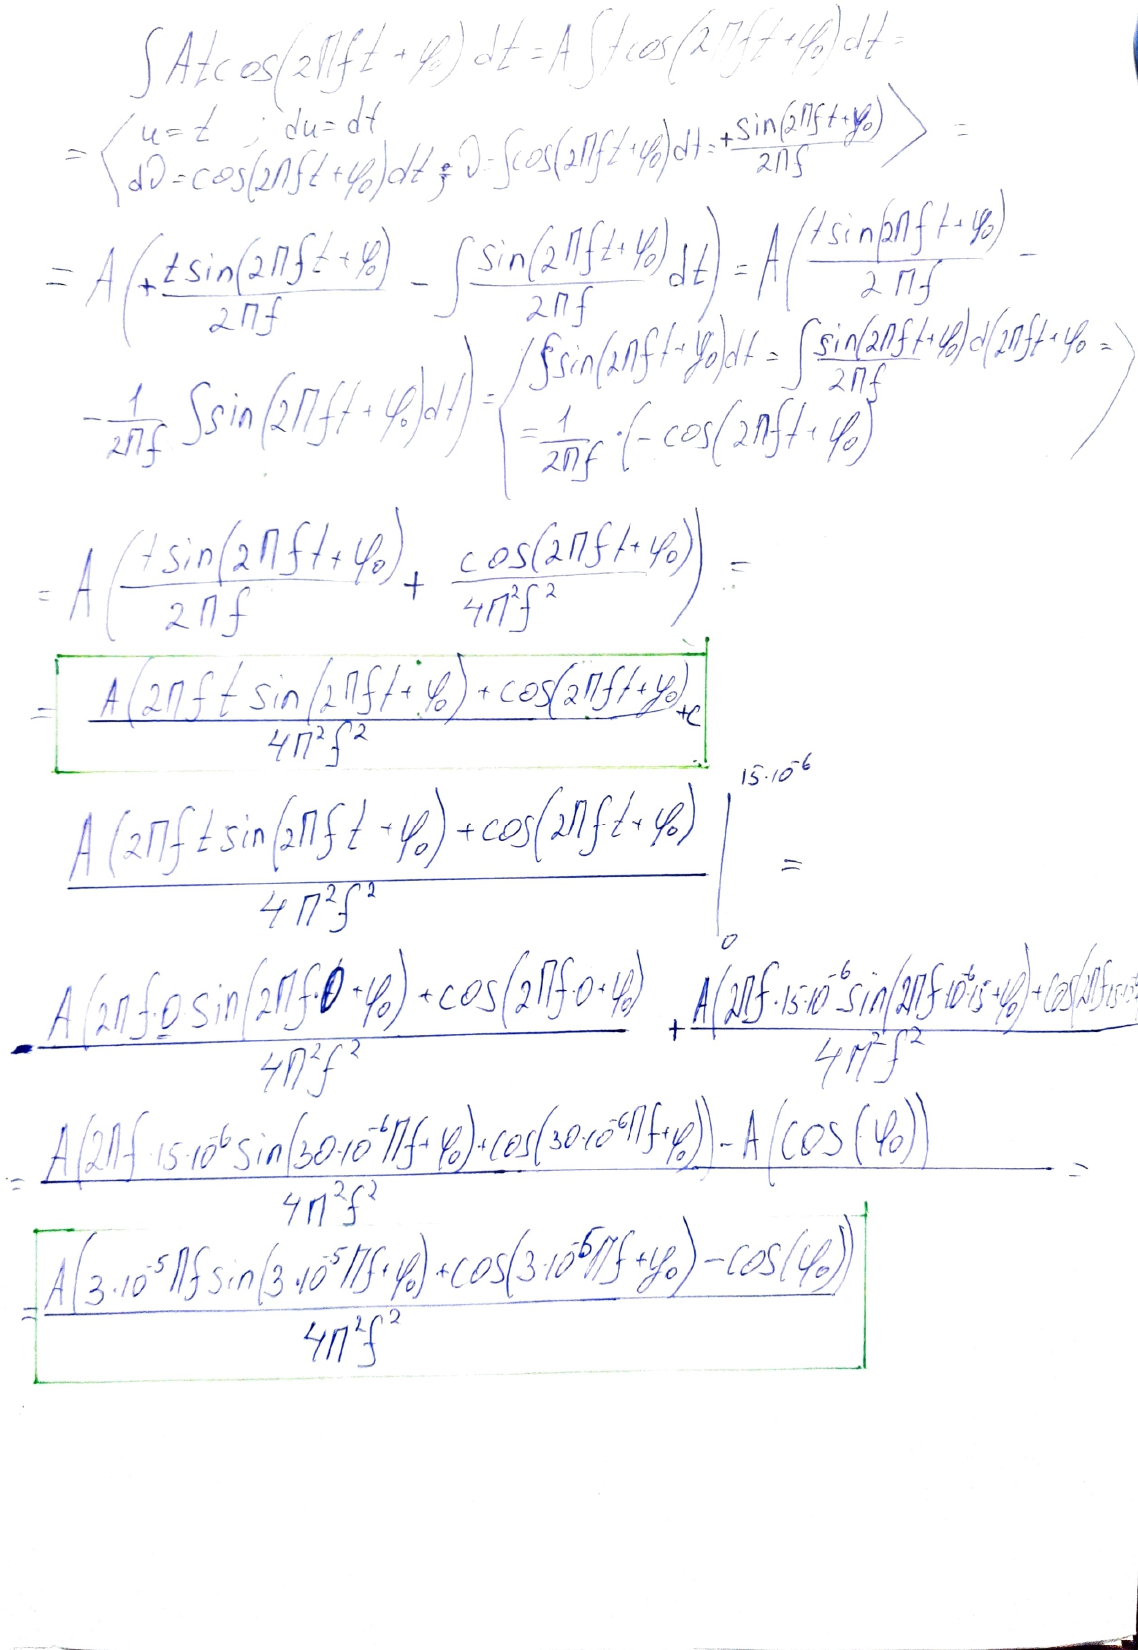 ∫ At cos(2πft + φ₀) dt = A ∫ t cos(2πft + φ₀) dt =
= ⟨ u = t ; du = dt
dϑ = cos(2πft + φ₀)dt ; ϑ = ∫cos(2πft + φ₀)dt = + sin(2πft + φ₀)/2πf ⟩ =
= A (+ t sin(2πft + φ₀)/2πf − ∫ sin(2πft + φ₀)/2πf dt) = A (t sin(2πft + φ₀)/2πf −
− 1/2πf ∫ sin(2πft + φ₀)dt) = ⟨ ∫ sin(2πft + φ₀)dt = ∫ sin(2πft + φ₀)/2πf d(2πft + φ₀ =
= 1/2πf · (− cos(2πft + φ₀) ⟩
= A (t sin(2πft + φ₀)/2πf + cos(2πft + φ₀)/4π²f²) =
= A(2πft sin(2πft + φ₀) + cos(2πft + φ₀)/4π²f² + c
A(2πft sin(2πft + φ₀) + cos(2πft + φ₀)/4π²f² |₀^15·10⁻⁶ =
− A(2πf·0·sin(2πf·0 + φ₀) + cos(2πf·0 + φ₀)/4π²f² + A(2πf·15·10⁻⁶ sin(2πf·10⁻⁶·15 + φ₀) + cos(2πf·15·10⁻⁶/4π²f²
= A(2πf·15·10⁻⁶ sin(30·10⁻⁶πf + φ₀) + cos(30·10⁻⁶πf + φ₀)) − A(cos(φ₀))/4π²f² =
= A(3·10⁻⁵πf sin(3·10⁻⁵πf + φ₀) + cos(3·10⁻⁵πf + φ₀) − cos(φ₀))/4π²f²